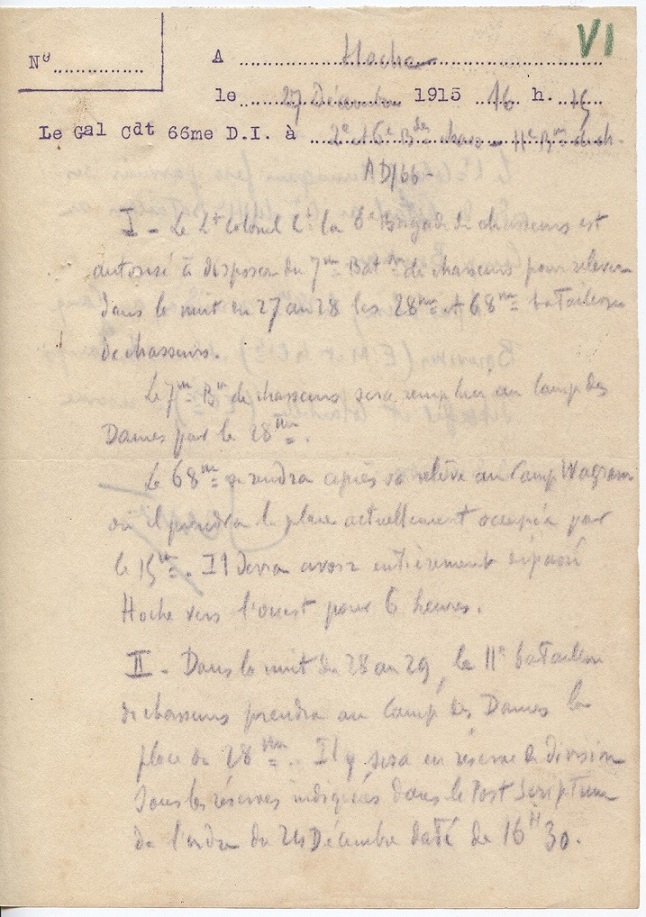 VI
A Hoche
N°
le 27 Décembre 1915 16 h. 15
Le Gal Cdt 66me D.I. à 2e et 6e Bdes chass - 11e Bon de ch.
AD/66-
I - Le Lt Colonel Ct la 8e Brigade de chasseurs est
autorisé à disposer du 7me Baton de chasseurs pour relever
dans la nuit du 27 au 28 les 28me et 68me bataillons
de chasseurs.
Le 7me Bn de chasseurs sera remplacé au Camp des
Dames par le 28me.
Le 68me se rendra après sa relève au Camp Wagram
où il prendra la place actuellement occupée par
le 15me. Il devra avoir entièrement dépassé
Hoche vers l'ouest pour 6 heures.
II - Dans la nuit du 28 au 29, le 11e bataillon
de chasseurs prendra au Camp des Dames la
place du 28me. Il y sera en réserve de division
sous les réserves indiquées dans le Post Scriptum
de l'ordre du 24 Décembre daté de 16H30.